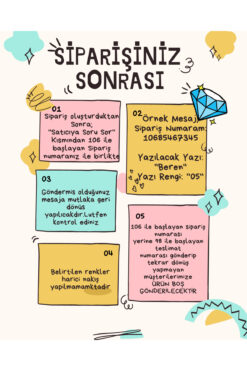 SİPARİŞİNİZ
SONRASI
01
Sipariş oluşturduktan
Sonra;
"Satıcıya Soru Sor"
Kısmından 106 ile
başlayan Sipariş
numaranız ile birlikte
02
Örnek Mesaj
Sipariş Numaram:
10685467345
Yazılacak Yazı:
"Beren"
Yazı Rengi: "05"
03
Göndermiş olduğunuz
mesaja mutlaka geri
dönüş
yapılıcakdır.Lütfen
kontrol ediniz
04
Belirtilen renkler
harici nakış
yapılmamamktadır
05
106 ile başlayan sipariş
numarası
yerine 98 ile başlayan
teslimat
numarası gönderip
tekrar dönüş
yapmayan
müşterilerimize
ÜRÜN BOŞ
GÖNDERİLECEKTİR